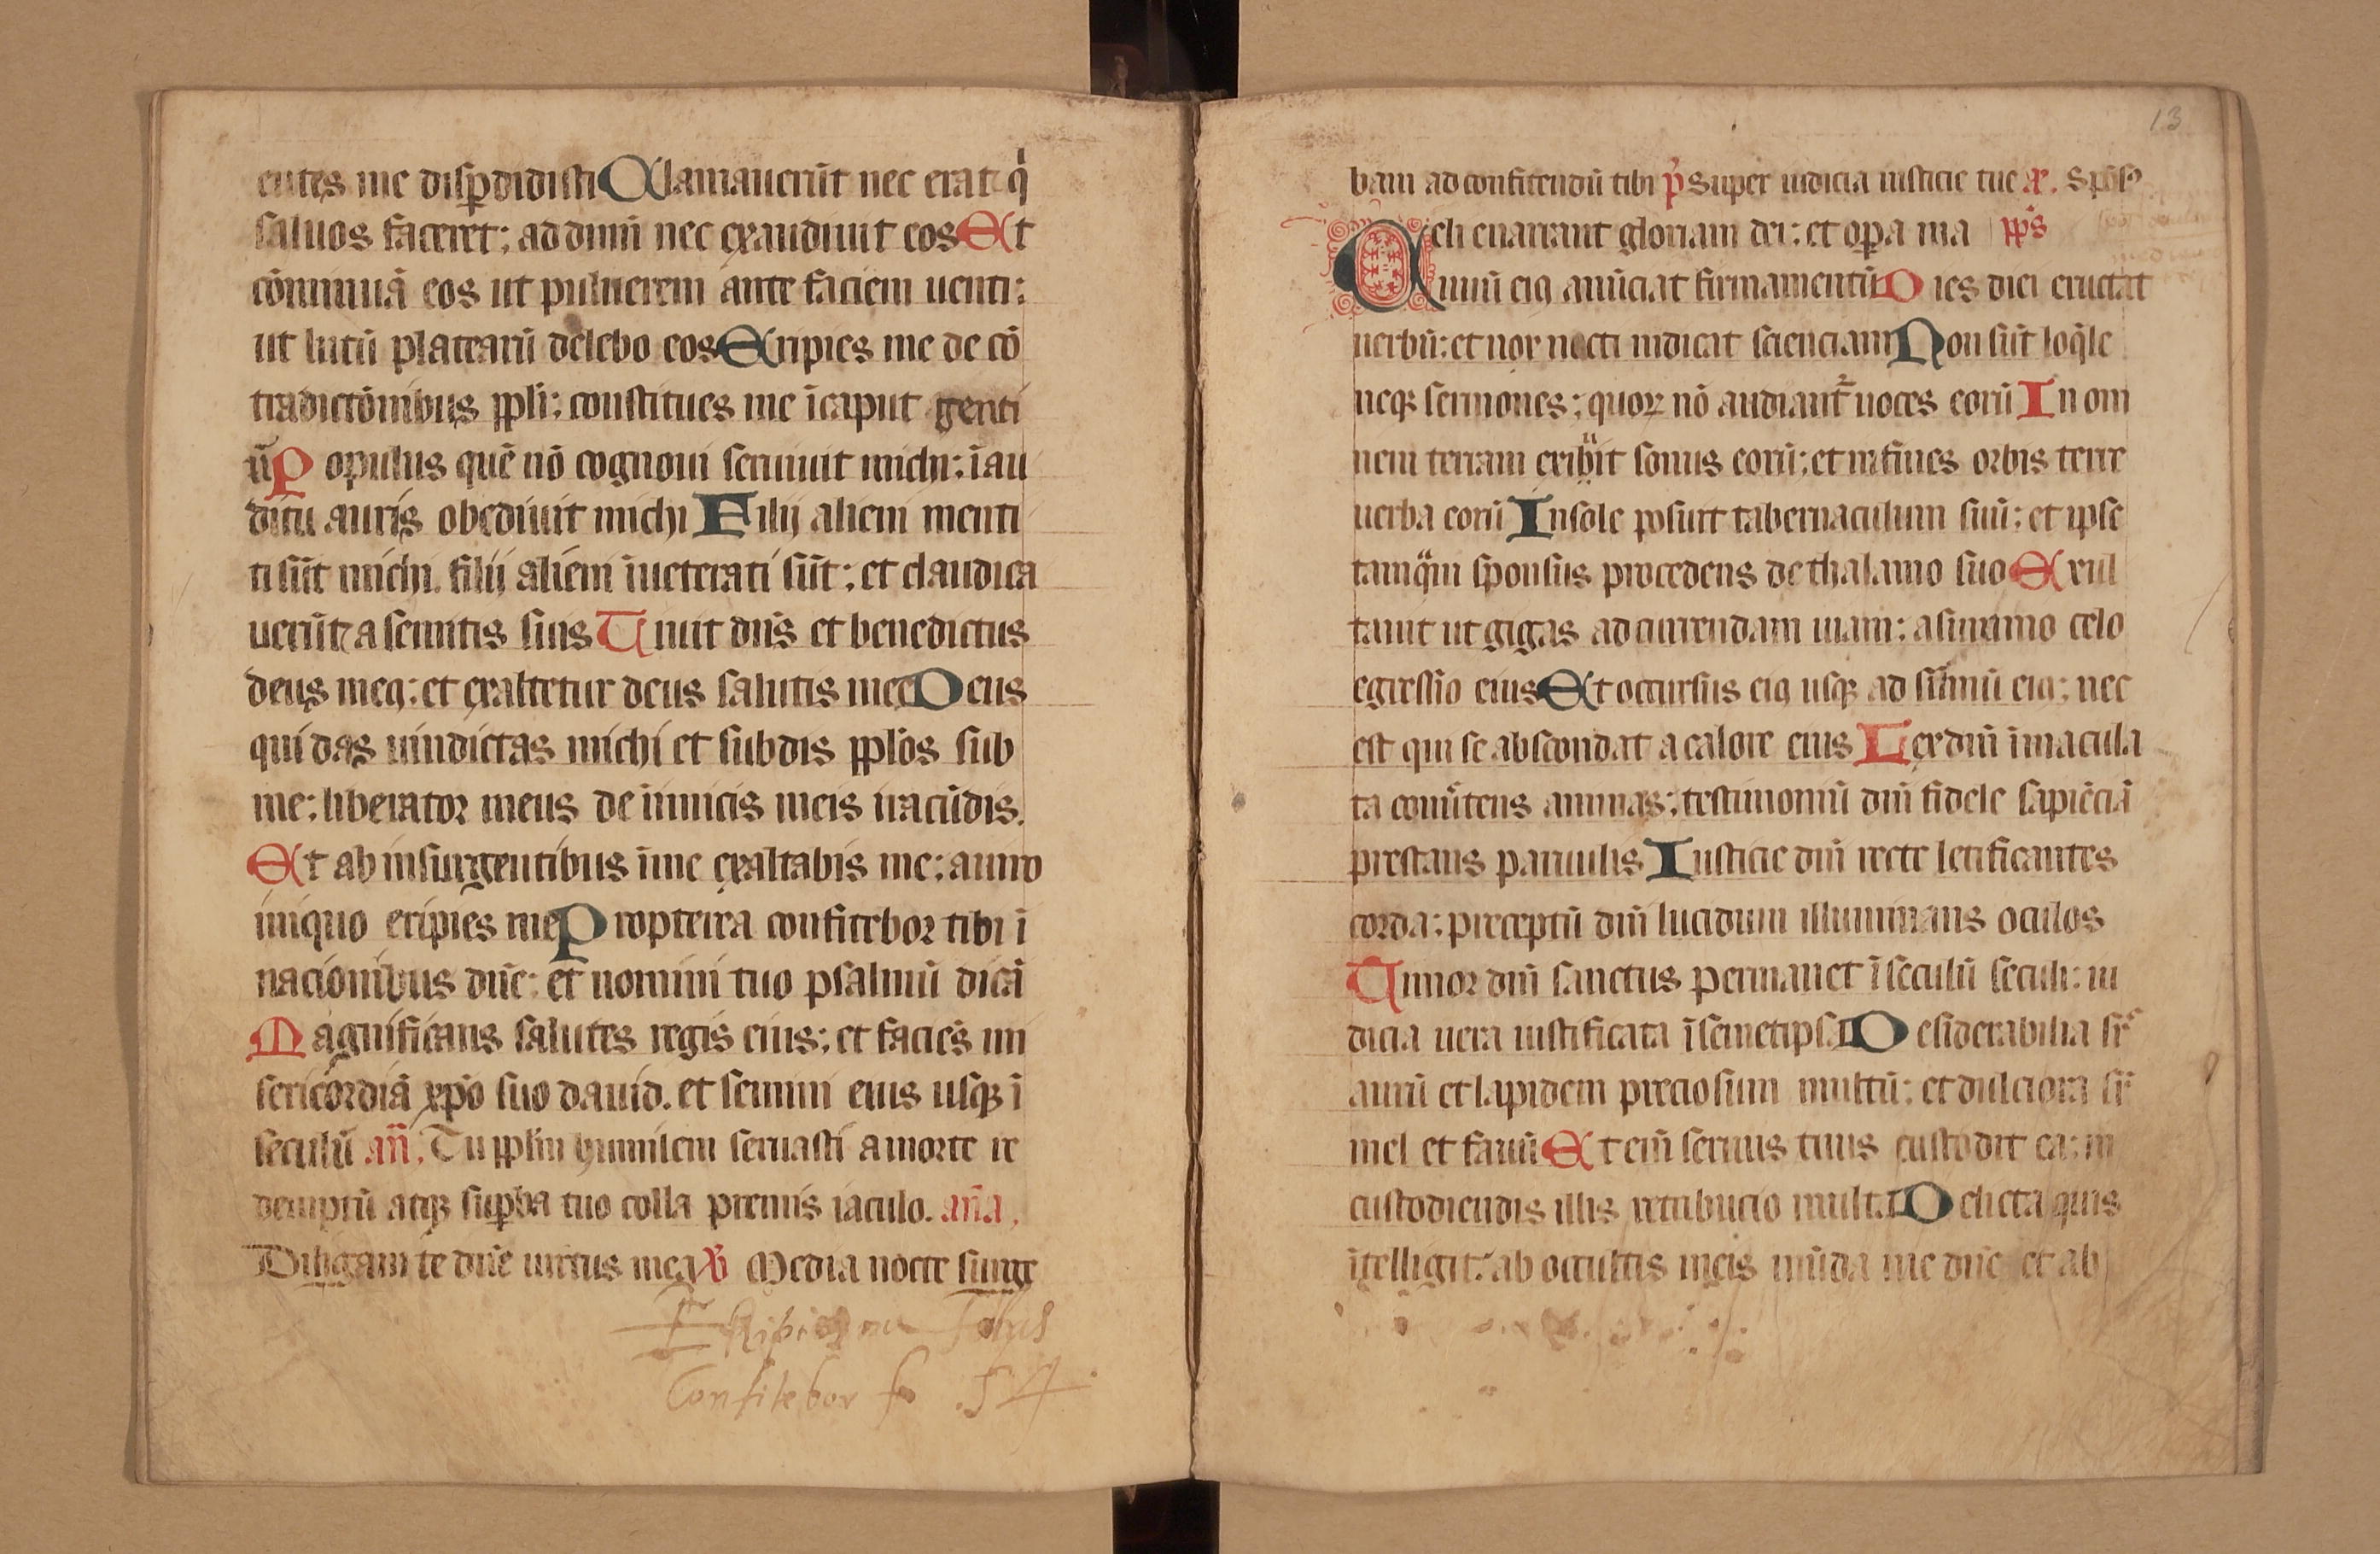 entes me disp̱didisti Clamauerūt nec erat q̇
saluos faceret; ad dn̄m nec exaudiuit eos Et
cōminuā eos ut puluerem ante faciem uenti;
ut lutū platearū delebo eos Eripies me de cō
tradictōnibus ppli; constitues me ī caput genti
ū Populus quē nō cognoui seruiuit michi; ī au
ditu auris obediuit michi Filij alieni menti
ti sūt michi. filij alieni īueterati sūt; et claudica
uerūt a semitis suis Viuit dn̄s et benedictus
deus meꝰ; et exaltetur deus salutis mee Deus
qui das uindictas michi et subdis pplo̊s sub
me; liberator meus de inimicis meis iracūdis.
Et ab insurgentibus ī me exaltabis me; a uiro
iniquo eripies me Propterea confitebor tibi ī
nacionibus dn̄e; et nomini tuo psalmū dicā
Magnificans salutes regis eius; et facies mi
sericordiā xp̄o suo dauid. et semini eius usqꝫ ī
seculū an̄. Tu pplm̄ humilem seruasti a morte re
demptū atqꝫ suꝑba tuo colla premis iaculo. an̄a.
Diligam te dn̄e uirtus mea ℣ Media nocte surge
Confitebor fo .54
13
bam ad confitendū tibi p̊ Super iudicia iusticie tue a. Spōs
Celi enarrant gloriam dei; et oꝑa ma pp̄s
nuū eiꝰ anūciat firmamentū Dies diei eructat
uerbū; et nox nocti indicat scienciam Non sūt loq̄le
neqꝫ sermones; quoꝝ nō audiant᷑ uoces eorū In om
nem terram exiuit sonus eorū; et in fines orbis terre
uerba eorū In sole posuit tabernaculum suū; et ipse
tamq̄m sponsus procedens de thalamo suo Exul
tauit ut gigas ad currendam uiam; a summo celo
egressio eius Et occursus eiꝰ usqꝫ ad sūmū eiꝰ; nec
est qui se abscondat a calore eius Lex dn̄i īmacula
ta conu̓tens animas; testimoniū dn̄i fidele sapiēciā
prestans paruulis Iusticie dn̄i recte letificantes
corda; preceptū dn̄i lucidum illuminans oculos
Timor dn̄i sanctus permanet ī seculū seculi; iu
dicia uera iustificata ī semetipsa Desiderabilia sr̄
aurū et lapidem preciosum multū; et dulciora sr̄
mel et fauū Et em̄ seruus tuus custodit ea; in
custodiendis illis retribucio multa Delicta quis
ītelligit; ab occultis meis mūda me dn̄e et ab